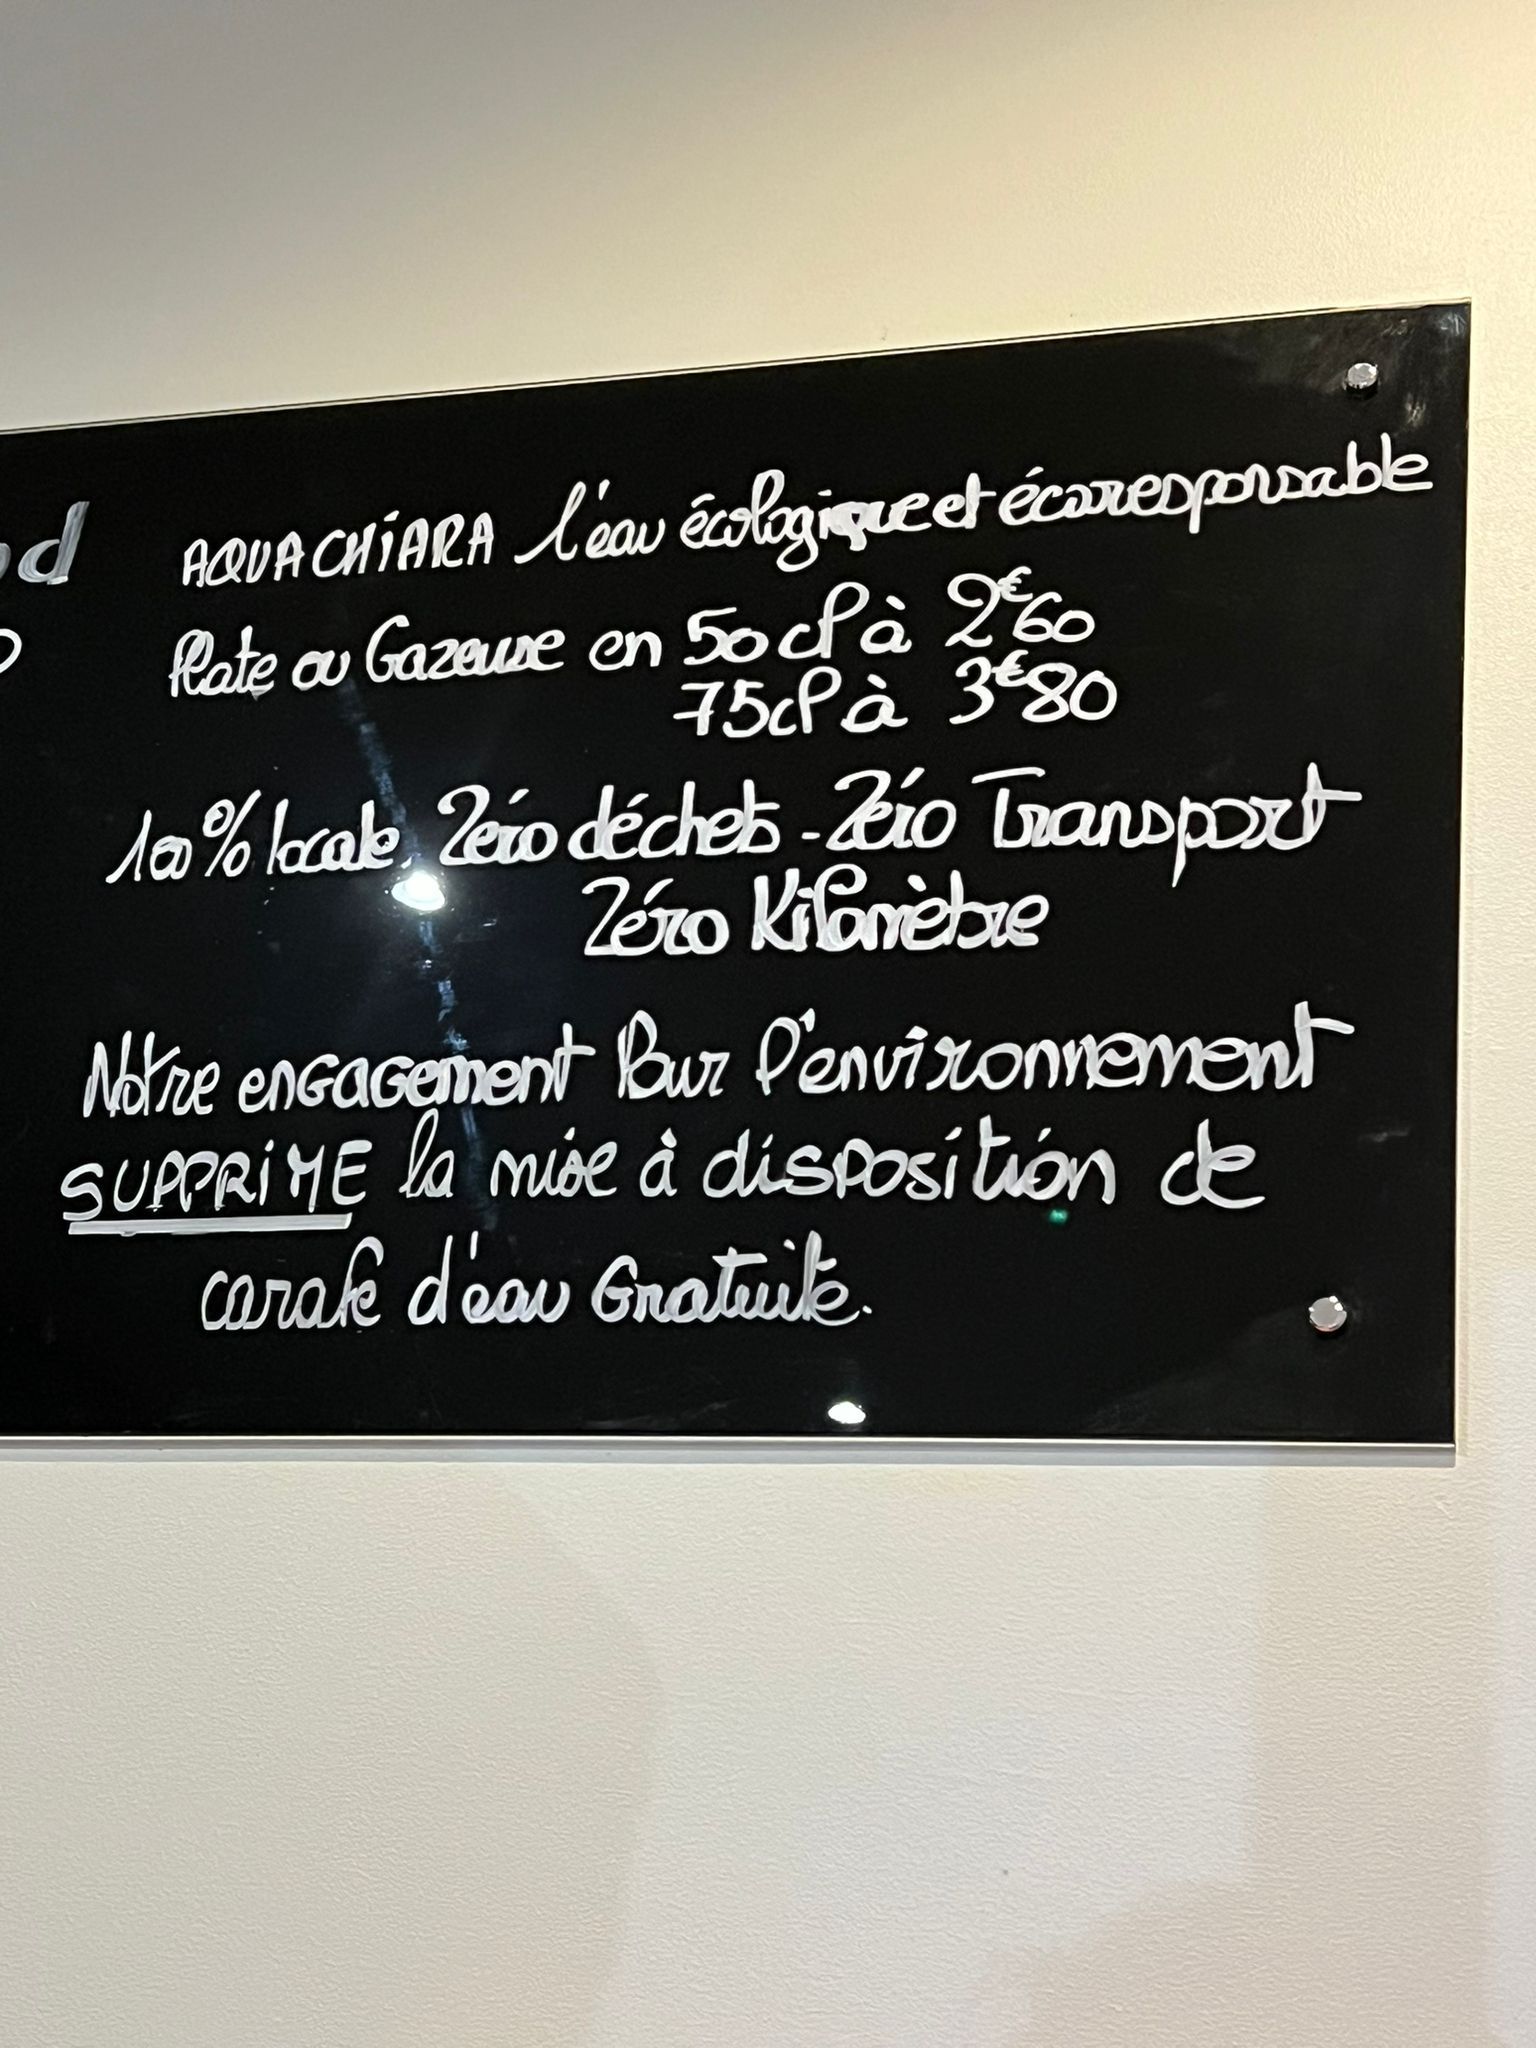 AQUACHIARA l'eau écologique et écoresponsable
Plate ou Gazeuse en 50cl à 2€60
75cl à 3€80
100% locale. Zéro déchets - Zéro Transport
Zéro Kilomètre
Notre engagement Pour l'environnement
SUPPRIME la mise à disposition de
carafe d'eau Gratuite.